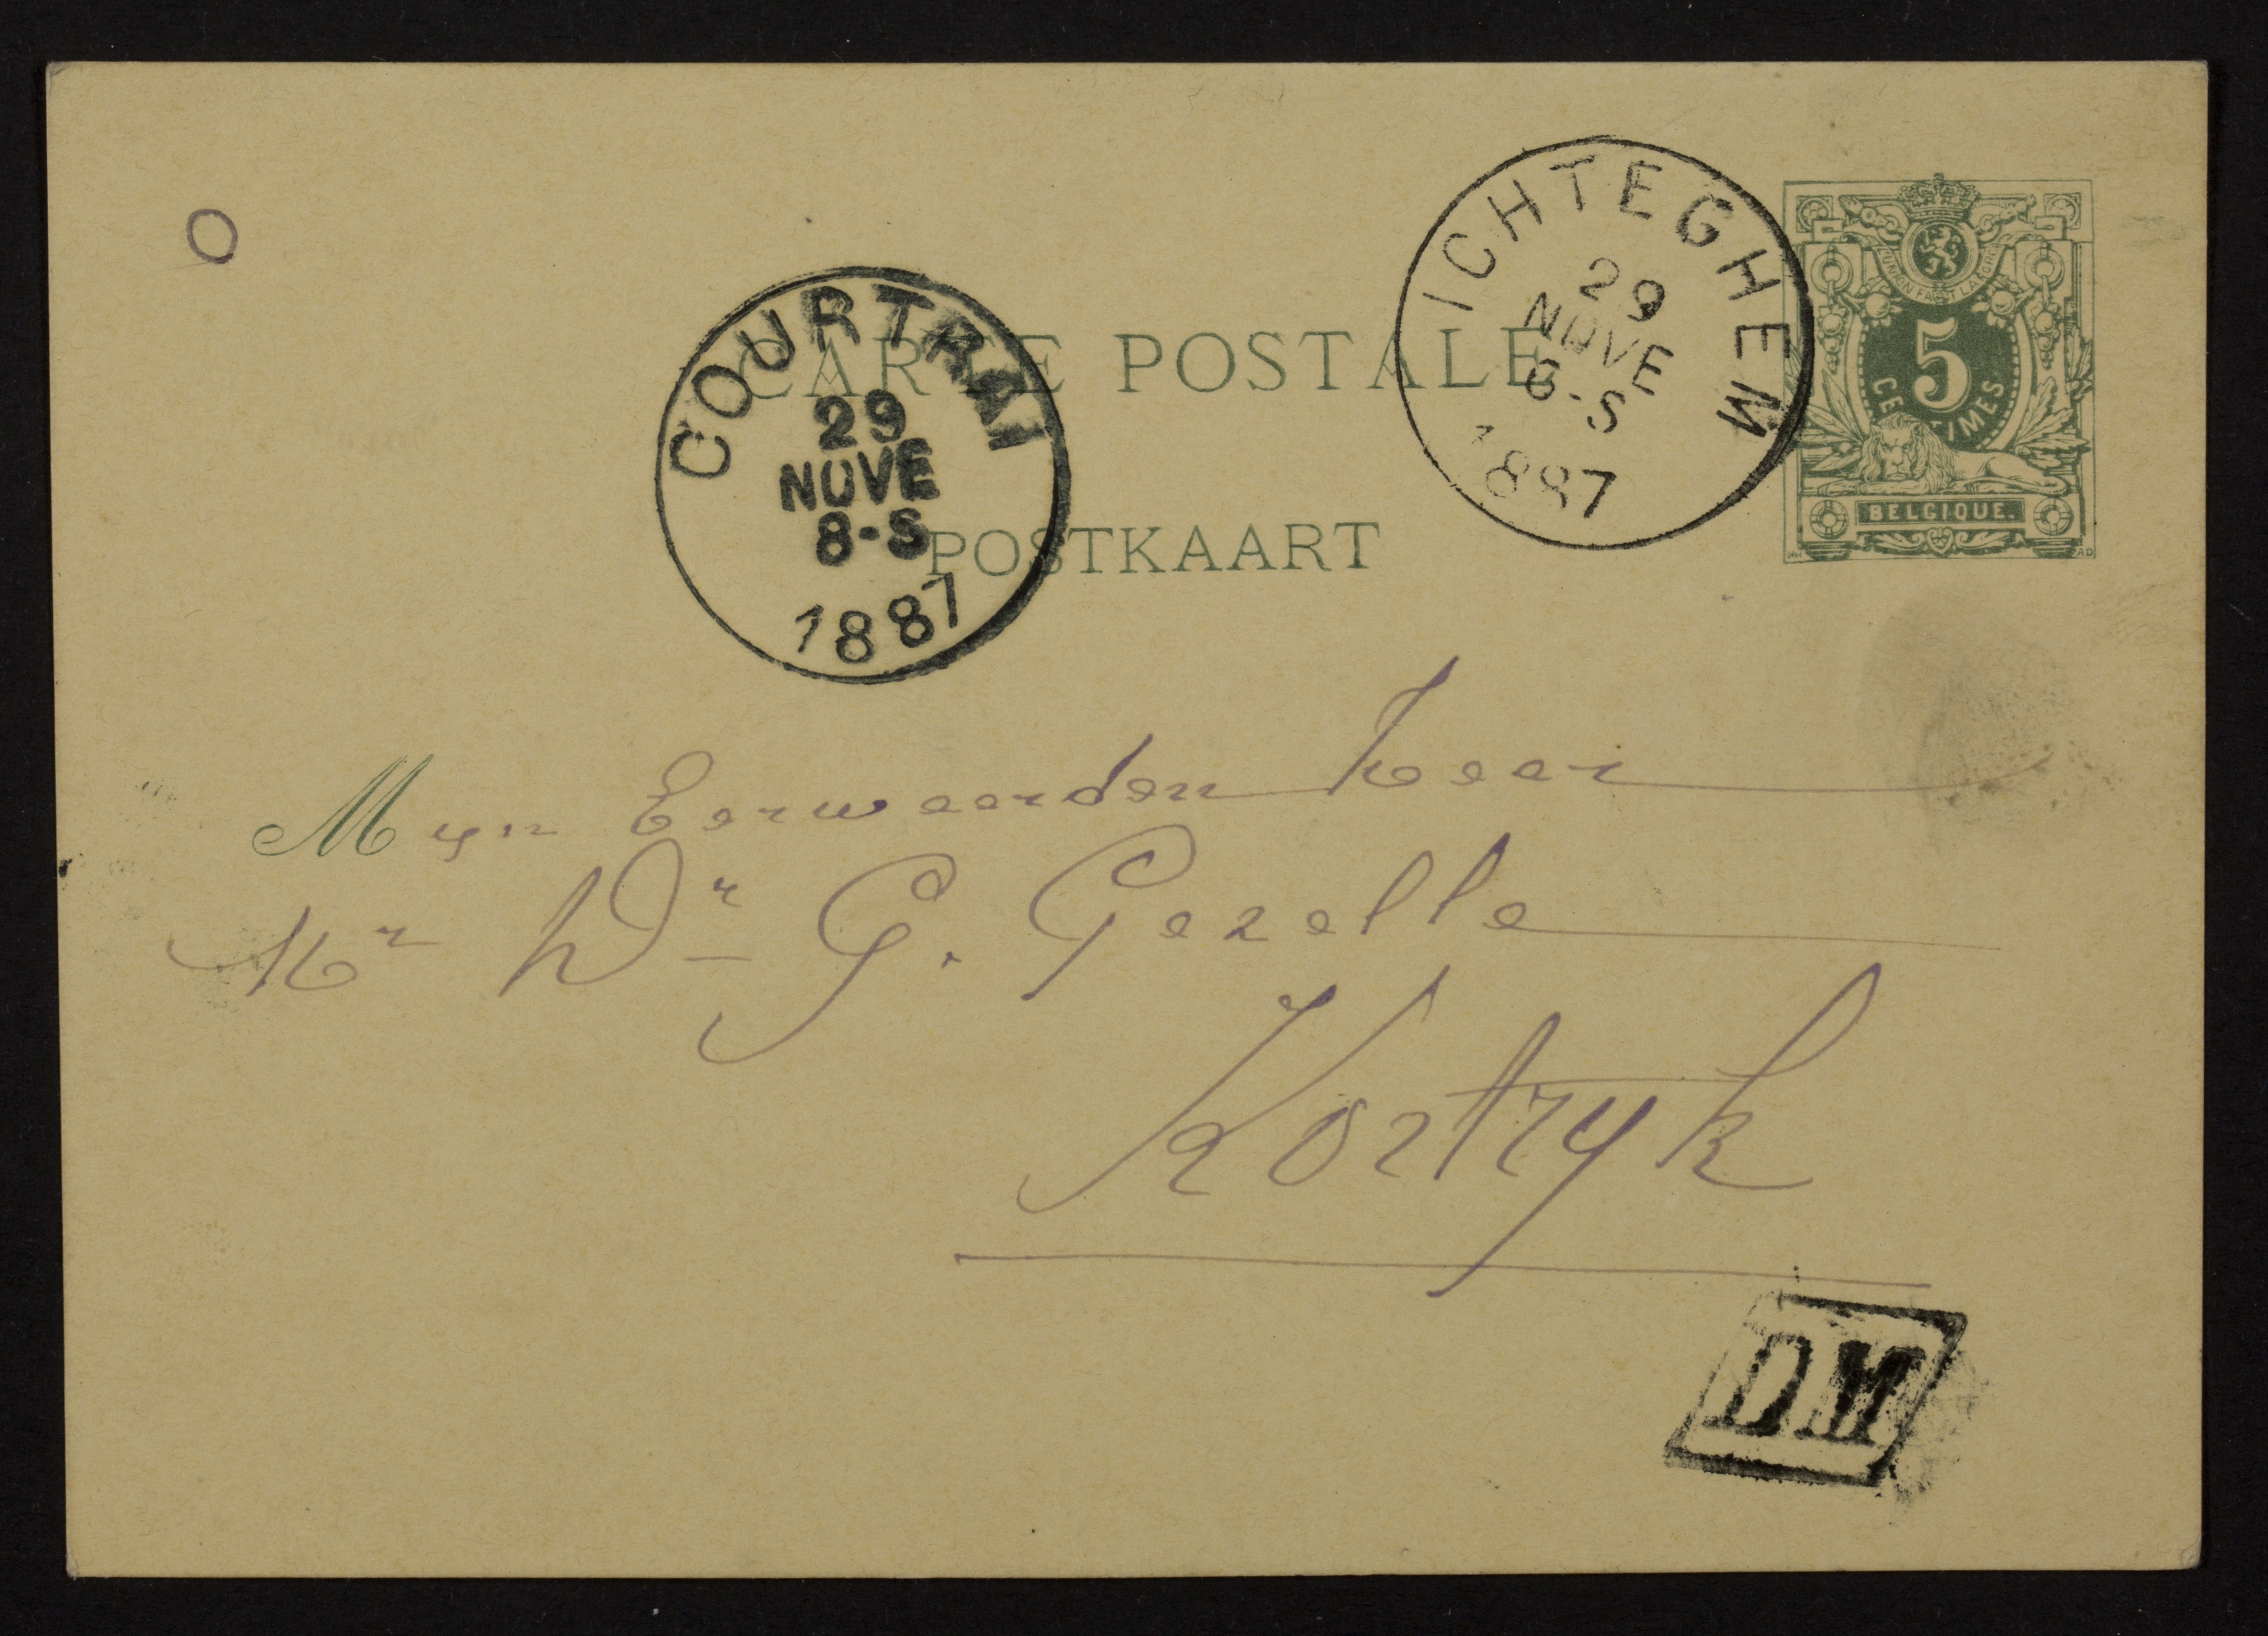 CARTE POSTALE
POSTKAART
COURTRAI
29
NOVE
8-S
1887
ICHTEGHEM
29
NOVE
6-S
1887
L'UNION FAIT LA FORCE
5
CENTIMES
BELGIQUE.
Myn Eerwaarden heer
Mr Dr G. Gezelle
Kortryk
DM